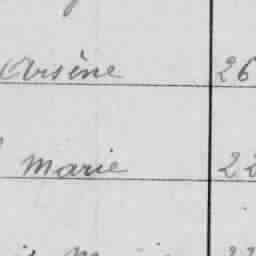 Arsène 26
Marie 22